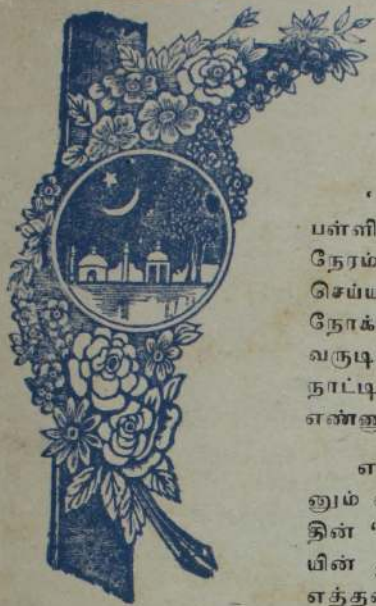 ‘
பள்ளி
நேரம்
செய்ய
நோக்
வருடி
நாட்டி
எண்ணு
எ
னும்
தின் ‘
யின்
எத்தன